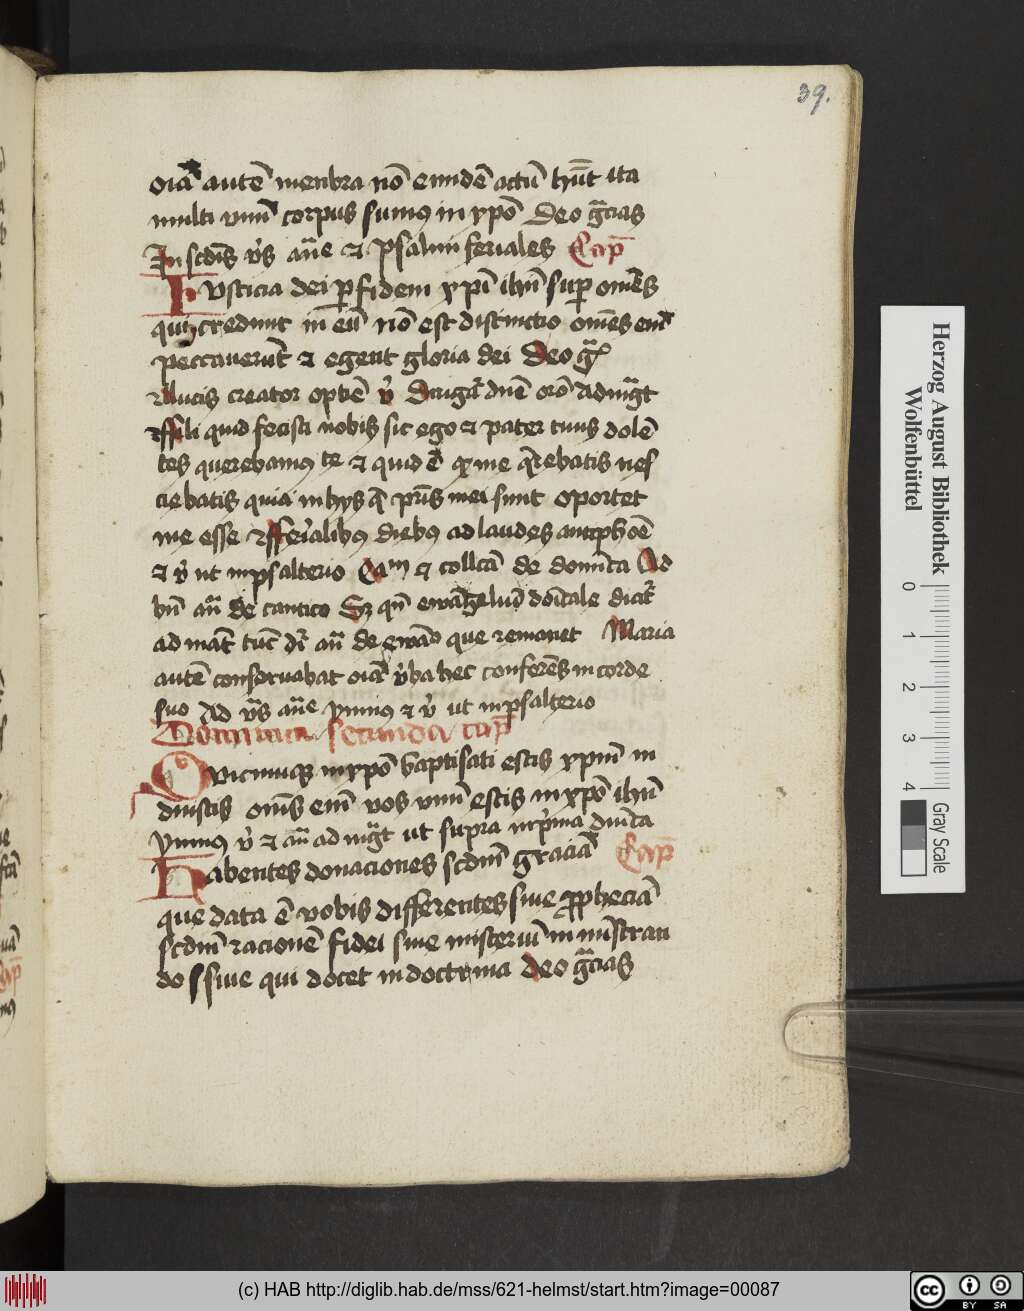 39.
oīa autē menbra nō eundē actū hn̄t ita
multi vnū corpus sumꝰ in xpō Deo gr̄cias
In scdīs vr̄s an̄e ⁊ psalmi feriales Cap̄
Iusticia dei ꝑ fidem xp̄i ihū sup omēs
qui credunt in eū nō est distinctio omēs enī
peccauerūt ⁊ egent gloria dei Deo gr̄
lucis creator optīe v̄ Dirigat̄ dn̄e orō Ad mgt̄
ffili quid fecisti nobis sic ego ⁊ pater tuus dolē
tes querebamꝰ te ⁊ quid ē ꝙ me q̄rebatis nes
ciebatis quia in hys q̄ pr̄is mei sunt oportet
me esse ffeīalibꝰ diebꝰ ad laudes antiphoē
⁊ v̄ ut in psalterio Cam ⁊ collcā de domīca Ad
bn̄ an̄ de cantico Sꝫ qn̄ ewāgeliū doīcale dicit̄
ad mat̄ tūc dr̄ an̄ de ewāō que remanet Maria
autē conseruabat oīa v̄ba hec conferēs in corde
suo Ad vr̄s an̄e ymnꝰ ⁊ v̄ ut in psalterio
Dominica secunda cap̄
Quicunqꝫ in xpō baptisati estis xpm̄ in
duistis omēs enī vos vnū estis in xpō ihū
ymnꝰ v̄ ⁊ an̄ ad mgt̄ ut supra in p̄ma dnīca
Habentes donaciones scdm̄ graciā Cap̄
que data ē vobis differentes siue ꝓpheciā
scdm̄ racionē fidei siue misteriū in mīstran
do siue qui docet in doctrina deo gr̄cias
Herzog August Bibliothek
Wolfenbüttel
0 1 2 3 4
Gray Scale
(c) HAB http://diglib.hab.de/mss/621-helmst/start.htm?image=00087
cc BY SA